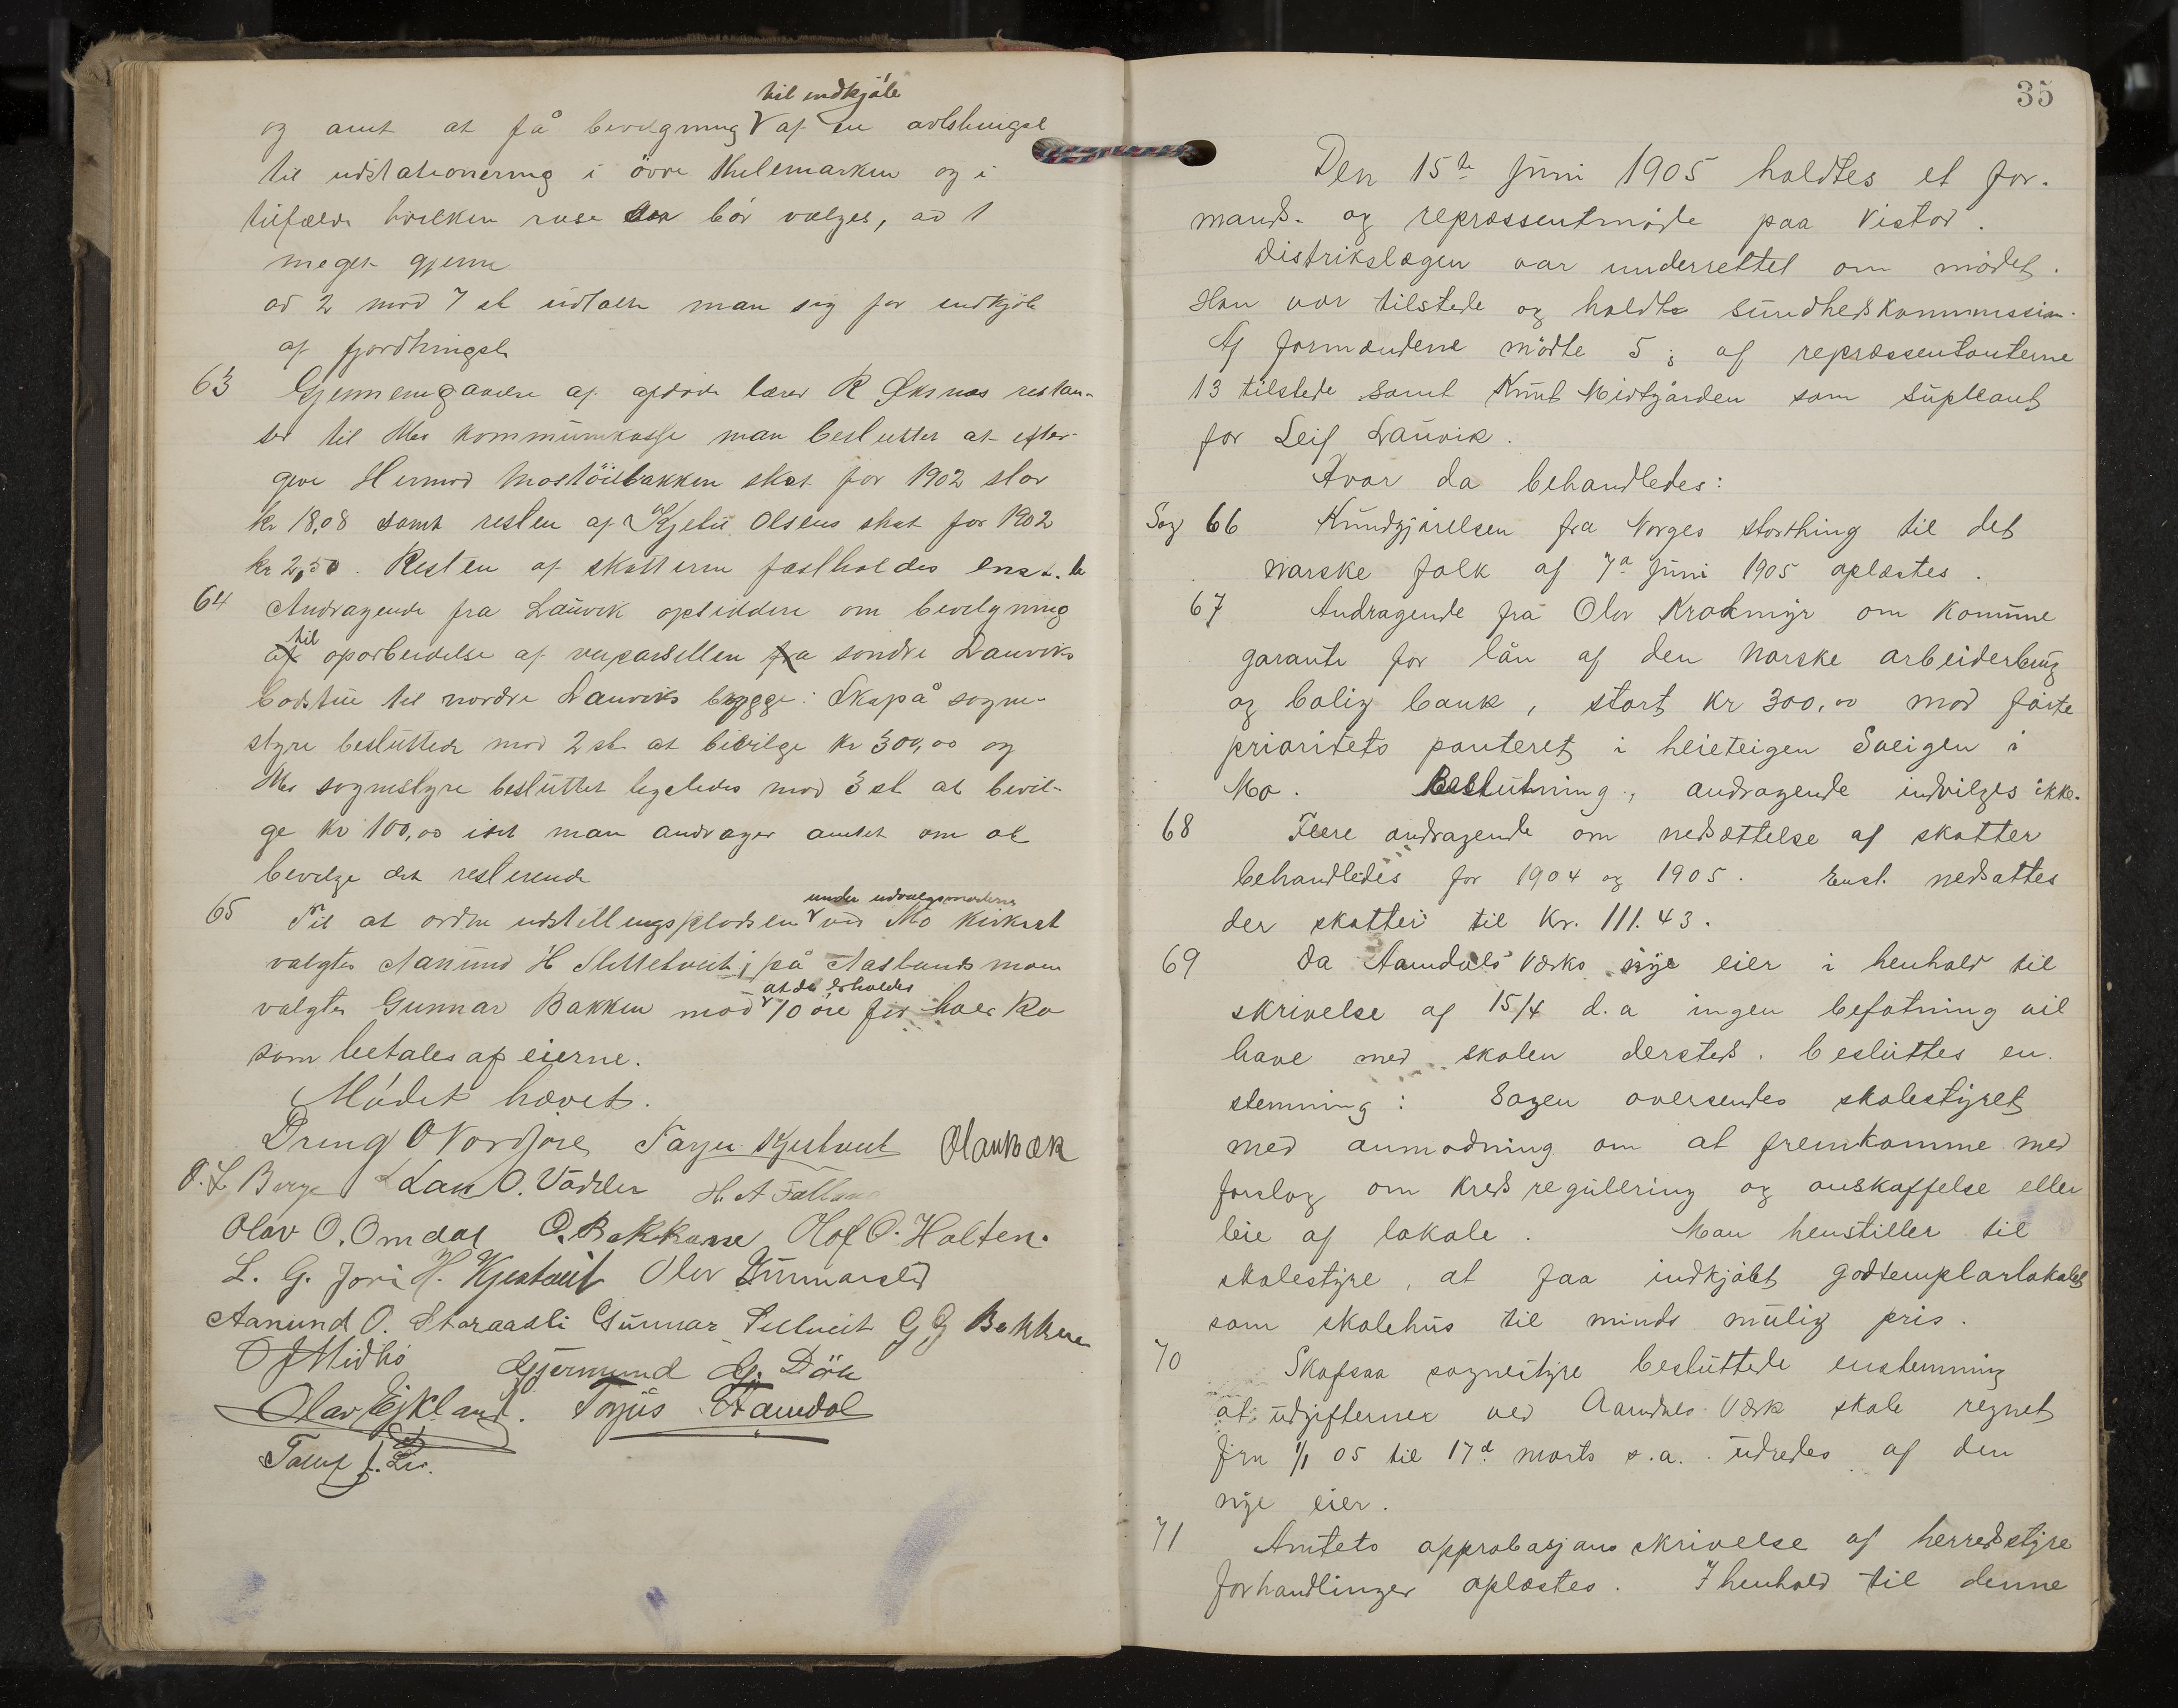 til indkjöb
og amt at få bevilgning V af en avlshingst
til udstationering i övre Thelemarken og i
tilfælde hvilken rase bör vælges, ad 1
meget gjerne
ad 2 mod 7 st udtalte man sig for indkjöb
af fjordhingst
63 Gjennemgaaelse af afdöde lærer R Öksnæs restan-
ser til Mo kommunekasse man besluttet at efter-
give Hermod Mostöilbakken skat for 1902 stor
kr 18,08 samt resten af Kjetil Olsens skat for 1902
kr 2,50. Resten af skatterne fastholdes enst.
64 Andragende fra Lauvik opsiddere om bevilgning
til
af oparbeidelse af veiparsellen fra söndre Lauviks
badstue til nordre Lauviks brygge: Skapså sogne-
styre besluttede mod 2 st at bevilge kr 300,00 og
Mo sognestyre besluttet ligeledes mod 3 st at bevil-
ge kr 100,00 idet man andrager amtet om at
bevilge det resterende
under udvalgsmöderne
65 Til at ordne udstillingspladsen V ved Mo kirke
valgtes Aanund H Slettetveit; på Aaslands mom
at der erholdes
valgtes Gunnar Bakken mod V 10 öre for hver ko
som betales af eierne.
Mödet hævet.
Dreng O Nordjore Tarjei Kjestveit Olav Bæk
O. L Berge Lars O. Vadder H. A Falland
Olav O. Omdal O. Bakkane Olaf O. Holten.
L. G. Jore H. Kjestveit Olav Gunnarslid
Aanund O. Storaasli Gunnar Selveit G G Bakken
O J Midbö Gjermund G. Döle
Olav Eikland. Torjus Aamdal
35
Den 15de Juni 1905 holdtes et for-
mands- og repræssentmöde paa Vistad.
Distrikslægen var underrettet om mödet.
Han var tilstede og holdte sundhedskommission.
Af formændene mödte 5; af repræssentanterne
13 tilstede samt Knut Midtgården som supleant
for Leif Lauvik.
Hvor da behandledes:
Sag 66 Kundgjörelsen fra Norges storthing til det
norske folk af 7de Juni 1905 oplæstes.
67 Andragende fra Olav Krokmyr om Komune
garanti for lån af den norske arbeiderbrug
og bolig bank, stort Kr 300,00 mod förste
prioritets panteret i heieteigen Sveigen i
Mo. Beslutning, andragende indvilges ikke.
68 Flere andragende om nedsættelse af skatter
behandledes for 1904 og 1905. Enst. nedsattes
der skatter til Kr. 111.43.
69 Da Aamdals Værks nye eier i henhold til
skrivelse af 15/4 d.a ingen befatning vil
have med skolen dersteds. besluttes en-
stemning: Sagen oversendes skolestyret
med anmodning om at fremkomme med
forslag om Kreds regulering og anskaffelse eller
leie af lokale. Man henstiller til
skolestyre, at faa indkjöbt godtemplarlokalet
som skolehus til minds mulig pris.
70 Skafsaa sognestyre besluttede enstemning
at udgifterne ved Aamdals Værk skole regnet
fra 1/1 05 til 17d marts s.a. udredes af den
nye eier.
71 Amtets approbasjons skrivelse af herredstyre
forhandlinger oplæstes. I henhold til denne